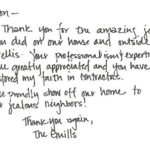 on—
Thank you for the amazing jo
ou did on our home and outside
ellis. Your professionalism & experti
re greatly appreciated and you have
stored my faith in contractors.
e proudly show off our home to
r jealous neighbors!
Thank you again,
The Smills